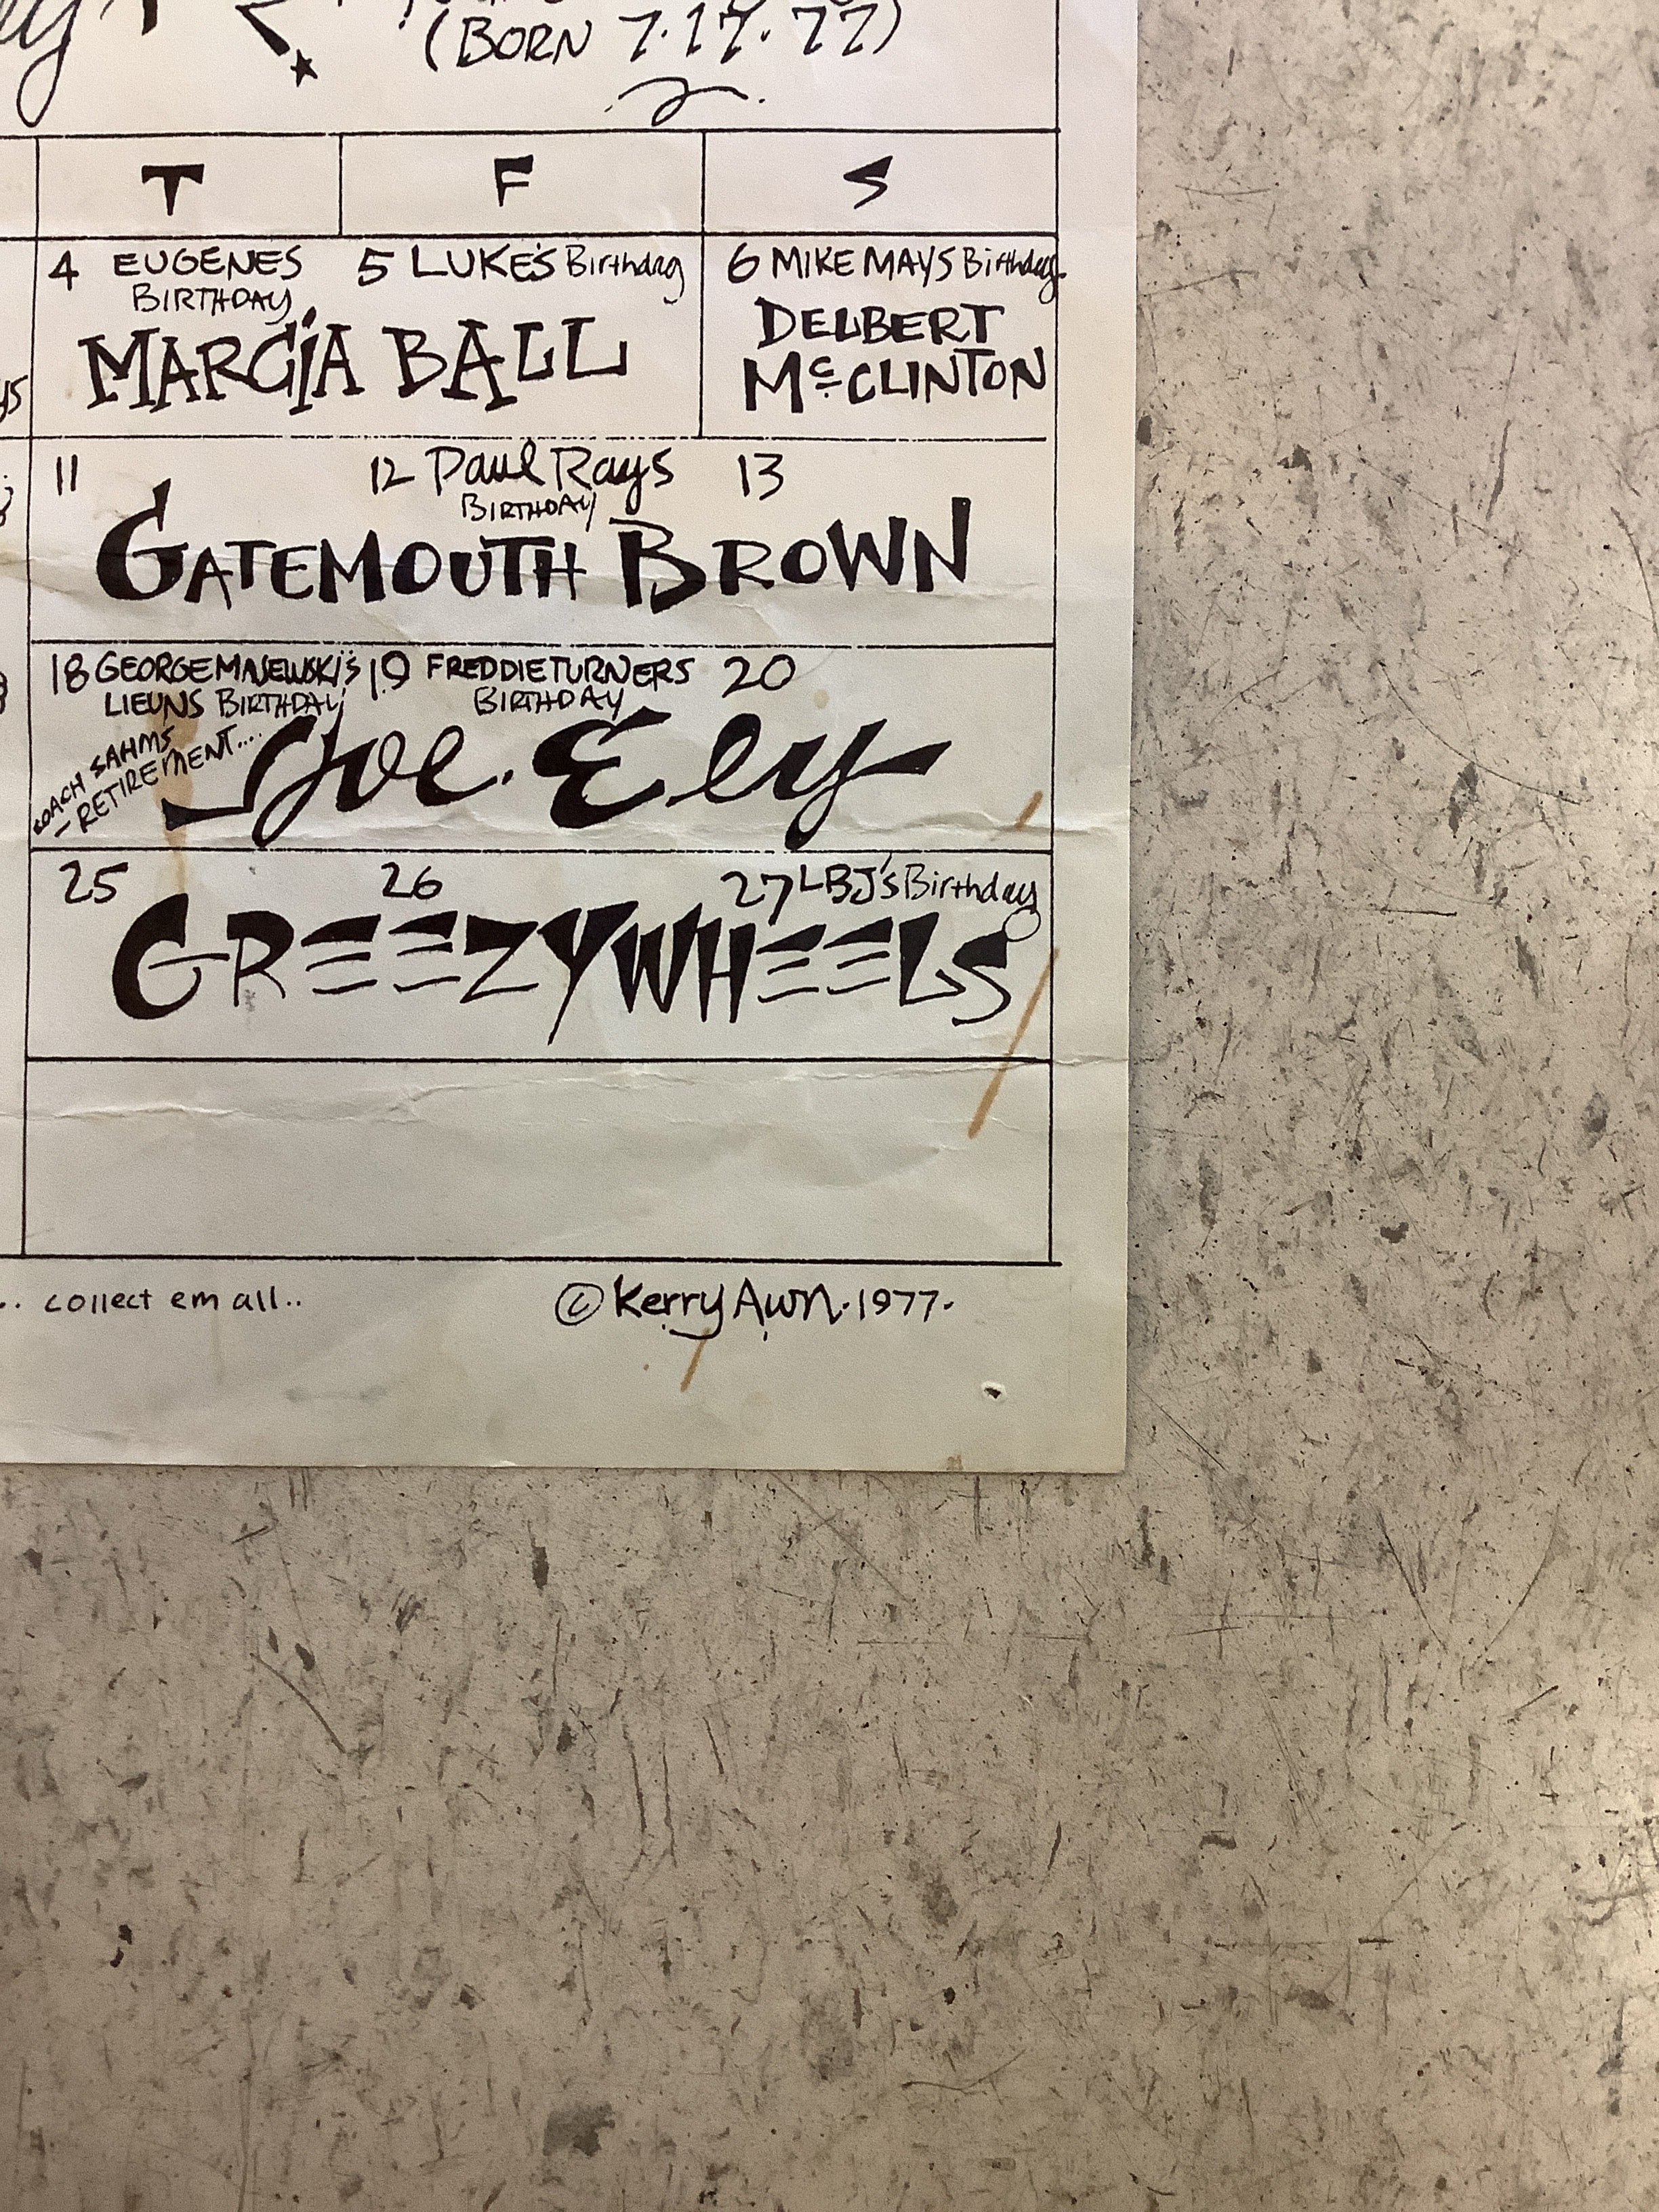 (BORN 7.17.77)
T F S
4 EUGENES
BIRTHDAY
MARCIA BALL
5 LUKE'S Birthday
6 MIKE MAYS Birthday.
DELBERT
McCLINTON
11 12 Paul Rays
BIRTHDAY
13
GATEMOUTH BROWN
18 GEORGE MAJEWSKI'S
LIEUNS BIRTHDAY
COACH SAHM'S
- RETIREMENT....
19 FREDDIE TURNERS
BIRTHDAY
20
Joe. Ely
25 26 27 LBJ's Birthday
GREEZY WHEELS
.. collect em all..
© Kerry Awn. 1977.